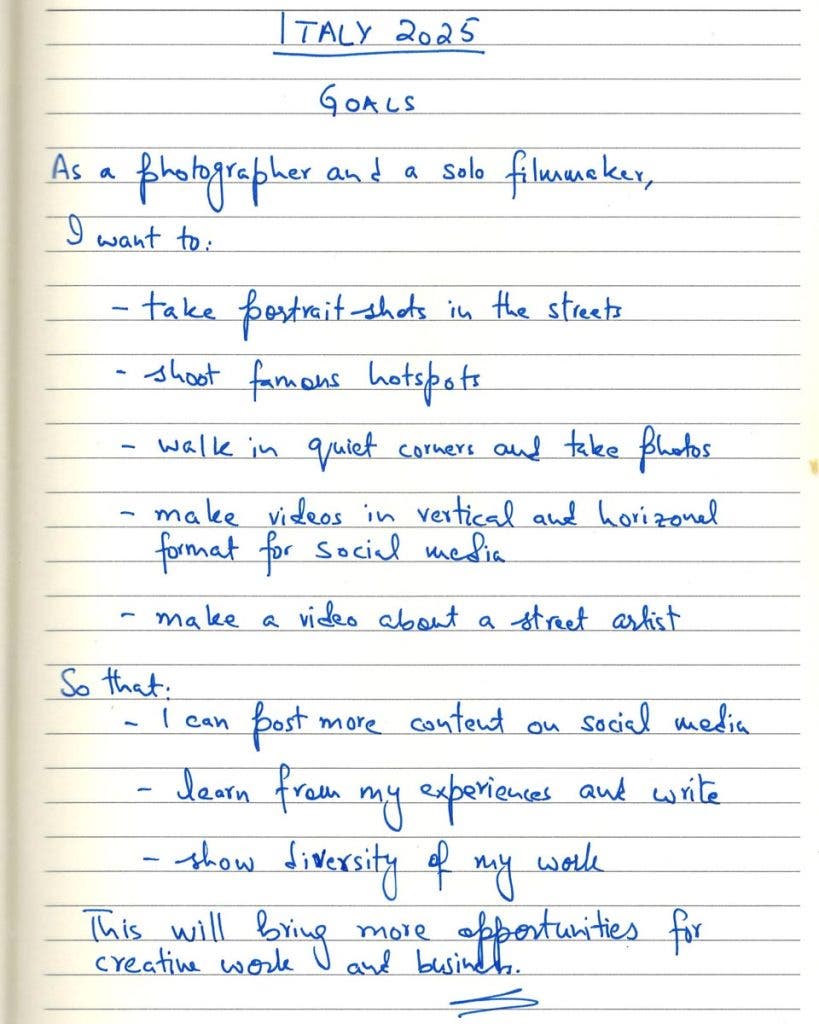 ITALY 2025
GOALS
As a photographer and a solo filmmaker,
I want to:
- take portrait shots in the streets
- shoot famous hotspots
- walk in quiet corners and take photos
- make videos in vertical and horizonal
format for social media
- make a video about a street artist
So that:
- I can post more content on social media
- learn from my experiences and write
- show diversity of my work
This will bring more opportunities for
creative work and business.